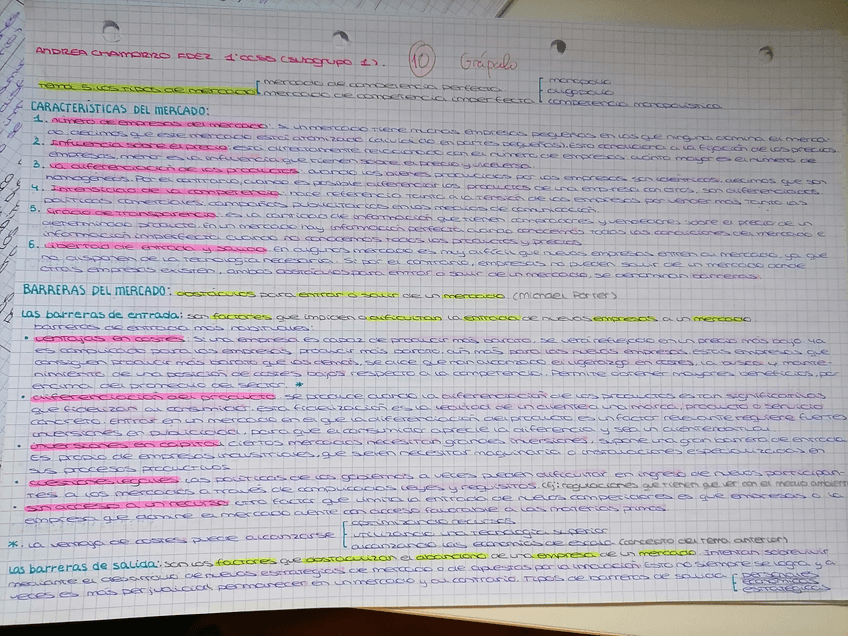 ANDREA CHAMORRO FDEZ 1ºCCSO (subgrupo 1). 10 Grápalo
Tema 5: Los tipos de mercado [ mercado de competencia perfecta [ monopolio
mercado de competencia imperfecta oligopolio
competencia monopolística
CARACTERÍSTICAS DEL MERCADO:
1. Número de empresas del mercado: si un mercado tiene muchas empresas pequeñas en las que ninguna domina el merca-
do, decimos que este mercado está atomizado (dividido en partes pequeñas). Esto condiciona a la fijación de los precios.
2. Influencia sobre el precio: está directamente relacionado con el número de empresas, cuanto mayor es el número de
empresas, menor es la influencia que tienen sobre el precio y viceversa.
3. La diferenciación de los productos: cuando los bienes producidos por las empresas son idénticos, decimos que son
homogéneos. Por el contrario, cuando es posible diferenciar los productos de una empresa con otros, son diferenciados
4. Intensidad de la competencia: hace referencia tanto a la tensión de las empresas por vender más tanto las
políticas comerciales, campañas publicitarias en los medios de comunicación.
5. Grado de transparencia: es la cantidad de información que tienen compradores y vendedores, sobre el precio de un
determinado producto. En un mercado hay información perfecta cuando conocemos todas las condiciones del mercado e
información imperfecta cuando no conocemos todos los productos y precios.
6. Libertad de entrada y salida: En algunos mercados es muy difícil que nuevas empresas entren al mercado, ya que
no disponen de la tecnología necesaria. Si por el contrario, empresas no pueden salir de un mercado donde
otras empresas existen, ambos obstáculos para entrar o salir de un mercado, se denominan barreras.
BARRERAS DEL MERCADO: obstáculos para entrar o salir de un mercado (Michael Porter)
Las barreras de entrada: son factores que impiden o dificultan la entrada de nuevas empresas a un mercado
barreras de entrada más habituales:
• ventajas en costes: Si una empresa es capaz de producir más barato, se verá reflejado en un precio más bajo ya
es complicado para las empresas, producir más barato aún más para las nuevas empresas, estas empresas que
consiguen producir más barato que los demás, se dice que han alcanzado el liderazgo en costes, la busca y mante-
nimiento de una posición de costes bajos respecto a la competencia. Permite obtener mayores beneficios, por
encima del promedio del sector. *
• diferenciación del producto: se produce cuando la diferenciación de los productos es tan significativa
que fidelizan al consumidor. Esta fidelización es la lealtad de un cliente a una marca, producto o servicio
concreto. Entrar en un mercado en el que la diferenciación del producto es un factor relevante requiere fuertes
inversiones en publicidad, para que el consumidor aprecie la diferencia y sea un cliente habitual
• inversiones en capital: ciertos mercados necesitan grandes inversiones, supone una gran barrera de entrada
es propio de empresas industriales, que suelen necesitar maquinaria o instalaciones especializadas en
sus procesos productivos.
• cuestiones legales: las políticas de los gobiernos a veces pueden dificultar en ingreso de nuevos participan-
tes a los mercados a través de complicadas leyes y requisitos (Ej: regulaciones que tienen que ver con el medio ambiente
• sin acceso a un recurso: otro factor que limita la entrada de nuevos competidores es que empresas o la
empresa que domine el mercado cuente con acceso favorable a las materias primas.
*. La ventaja de costes puede alcanzarse [ optimizando recursos
utilizando una tecnología superior
alcanzando las economías de escala (concepto del tema anterior)
Las barreras de salida: son los factores que obstaculizan el abandono de una empresa de un mercado. Intentan sobrevivir
mediante el desarrollo de nuevas estrategias de mercado o de apuestas por la innovación. Esto no siempre se logra, y a
veces es más perjudicial permanecer en un mercado y al contrario. Tipos de barreras de salida [
estratégicas